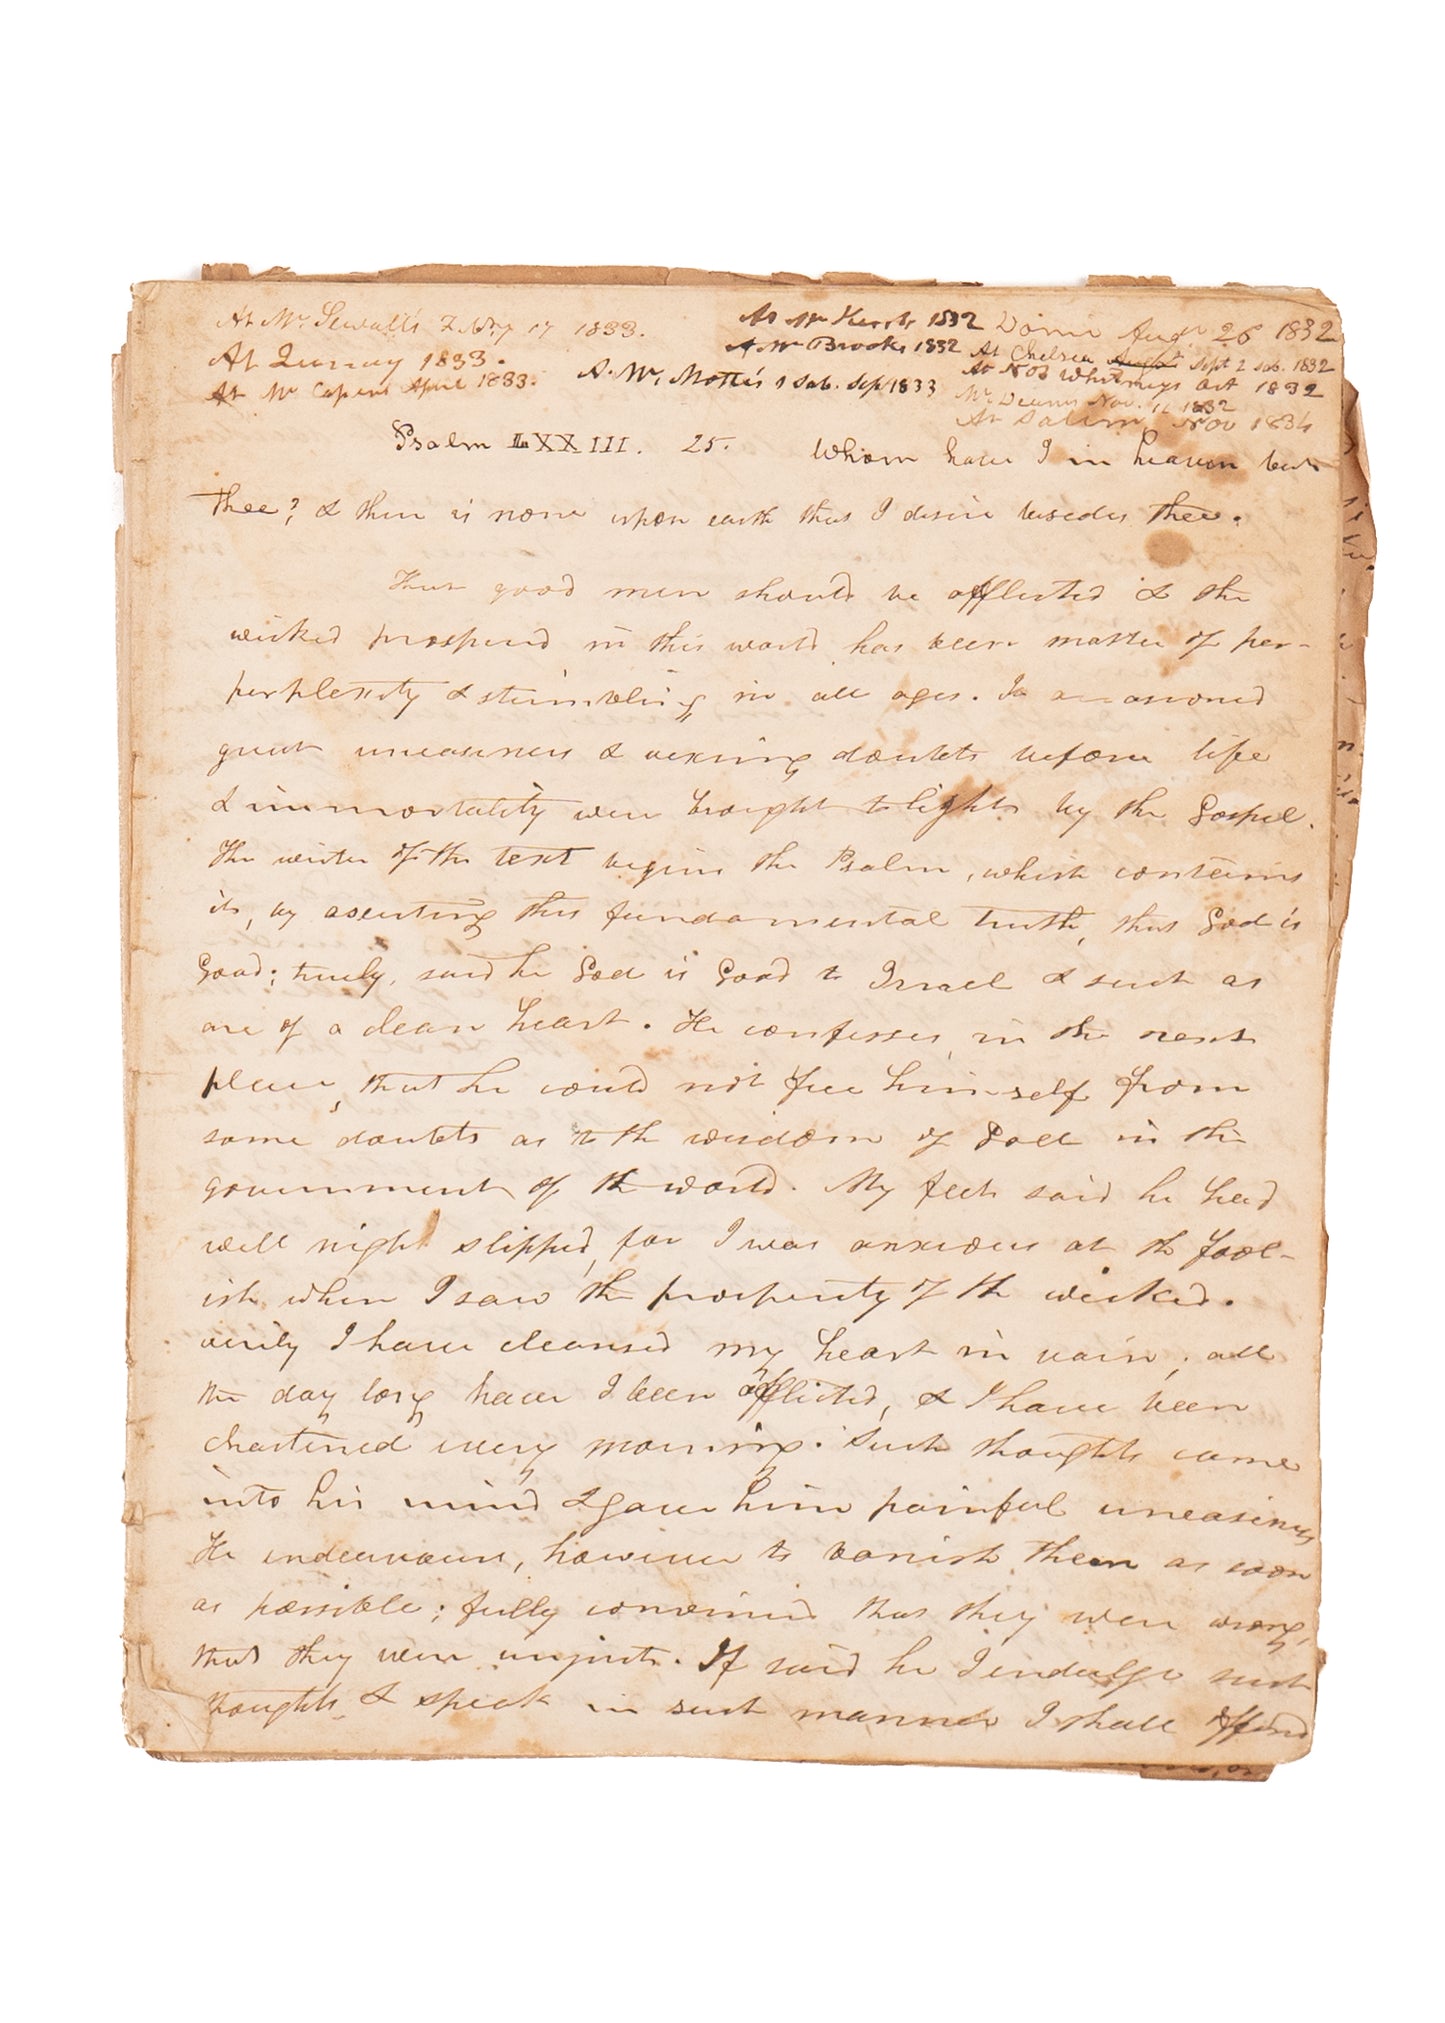 At Mr. Sewall's Feby 17 1833.
At Quincy 1833.
At Mr Capen's April 1833.
A. Mr. Mottes 1 Sab. Sep 1833
At Mr 1832
A Mr Brooks 1832
Domi Augt 26 1832
At Chelsea August Sept 2 sab. 1832
At Whitneys Oct 1832
Mr. Nov. 11 1832
At Salem Nov 1834
Psalm LXXIII. 25. Whom have I in heaven but
thee? & there is none upon earth that I desire besides thee.
That good men should be afflicted & the
wicked prospered in this world has been matter of per-
perplexity & stumbling in all ages. It occasioned
great uneasiness & vexing doubts before life
& immortality were brought to light by the Gospel.
The writer of the text begins the Psalm, which contains
it, by asserting this fundamental truth, that God is
Good; truly, said he God is Good to Israel & such as
are of a clean heart. He confesses, in the next
place, that he could not free himself from
some doubts as to the wisdom of God in the
government of the world. My feet said he had
well night slipped, for I was anxious at the fool-
ish when I saw the prosperity of the wicked.
verily I have cleansed my heart in vain; all
the day long have I been afflicted, & I have been
chastened every morning. Such thoughts came
into his mind & gave him painful uneasiness
He endeavours, however to banish them as soon
as possible; fully convinced that they were wrong,
that they were unjust. If said he I indulge such
thoughts & speak in such manner I shall offend